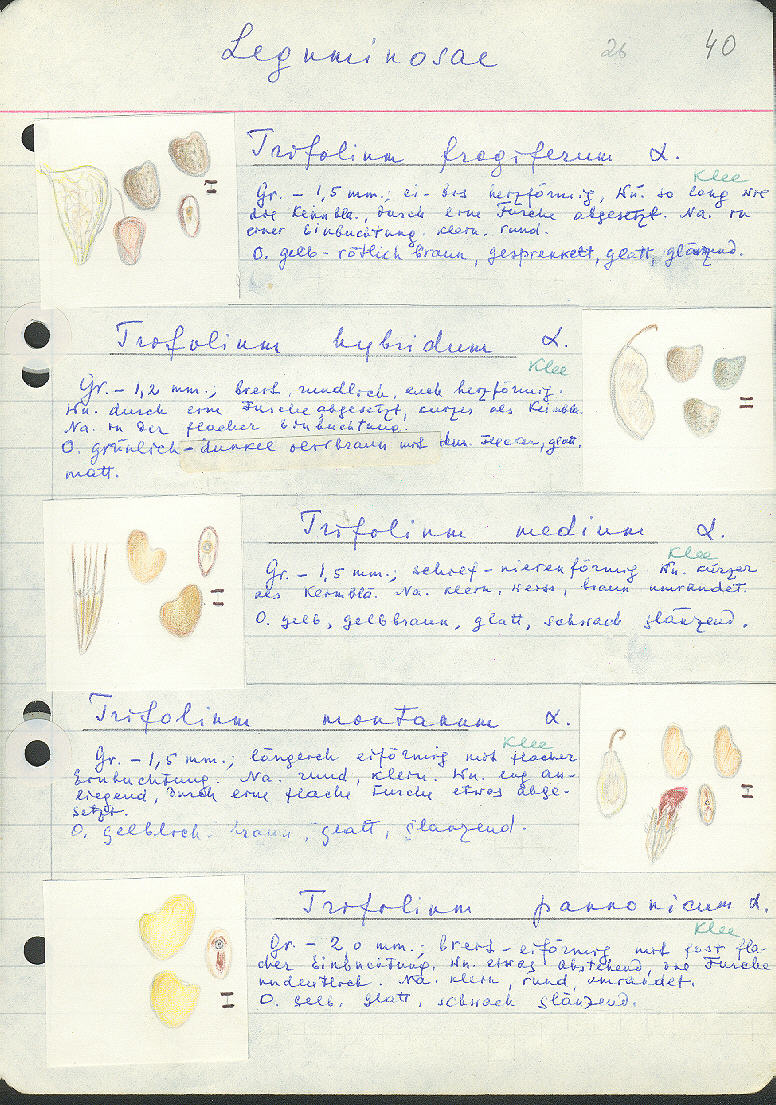 Leguminosae 26 40
Trifolium fragiferum L.
Klee
Gr. - 1,5 mm.; ei- bis herzförmig, Wu. so lang wie
die Keimblä., durch eine Furche abgesetzt. Na. in
einer Einbuchtung. klein. rund.
O. gelb - rötlich braun, gesprenkelt, glatt, glänzend.
Trifolium hybridum L.
Klee
Gr. - 1,2 mm.; breit, rundlich, auch herzförmig.
Wu. durch eine Furche abgesetzt, kürzer als Keimblä.
Na. in der flacher Einbuchtung.
O. grünlich - dunkel olivbraun mit dun. Flecken, glatt.
matt.
Trifolium medium L.
Klee
Gr. - 1,5 mm.; schief - nierenförmig Wu. kürzer
als Keimblä. Na. klein, weiss, braun umrandet.
O. gelb, gelbbraun, glatt, schwach glänzend.
Trifolium montanum L.
Klee
Gr. - 1,5 mm.; länglich eiförmig mit flacher
Einbuchtung. Na. rund, klein. Wu. eng an-
liegend, durch eine flache Furche etwas abge-
setzt.
O. gelblich - braun, glatt, glänzend.
Trifolium pannonicum L.
Klee
Gr. - 2,0 mm.; breit - eiförmig mit fast fla-
cher Einbuchtung. Wu. etwas abstehend, die Furche
undeutlich. Na. klein, rund, umrandet.
O. gelb, glatt, schwach glänzend.